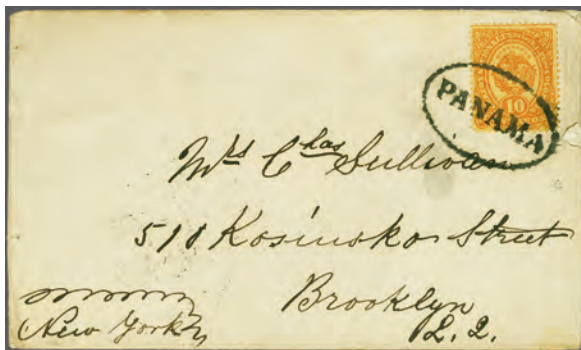 PANAMA
10
Mrs Chas Sullivan
510 Kosinsko Street
Brooklyn
L. I.
New York